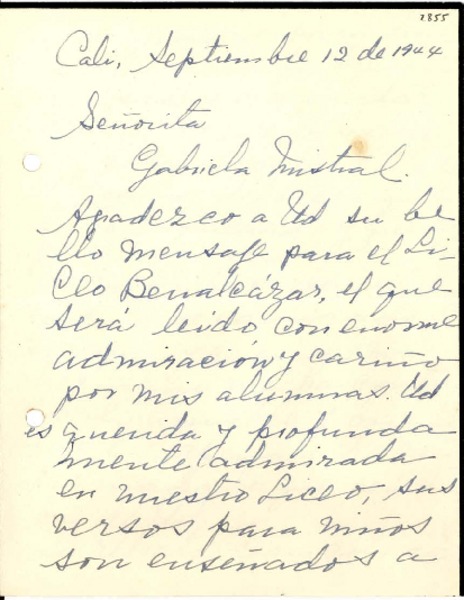 2855
Cali, Septiembre 12 de 1944
Señorita
Gabriela Mistral.
Agradezco a Ud su be
llo mensaje para el Li-
ceo Benalcázar, el que
será leído con enorme
admiración y cariño
por mis alumnas. Ud
es querida y profunda
mente admirada
en nuestro Liceo, sus
versos para niños
son enseñados a